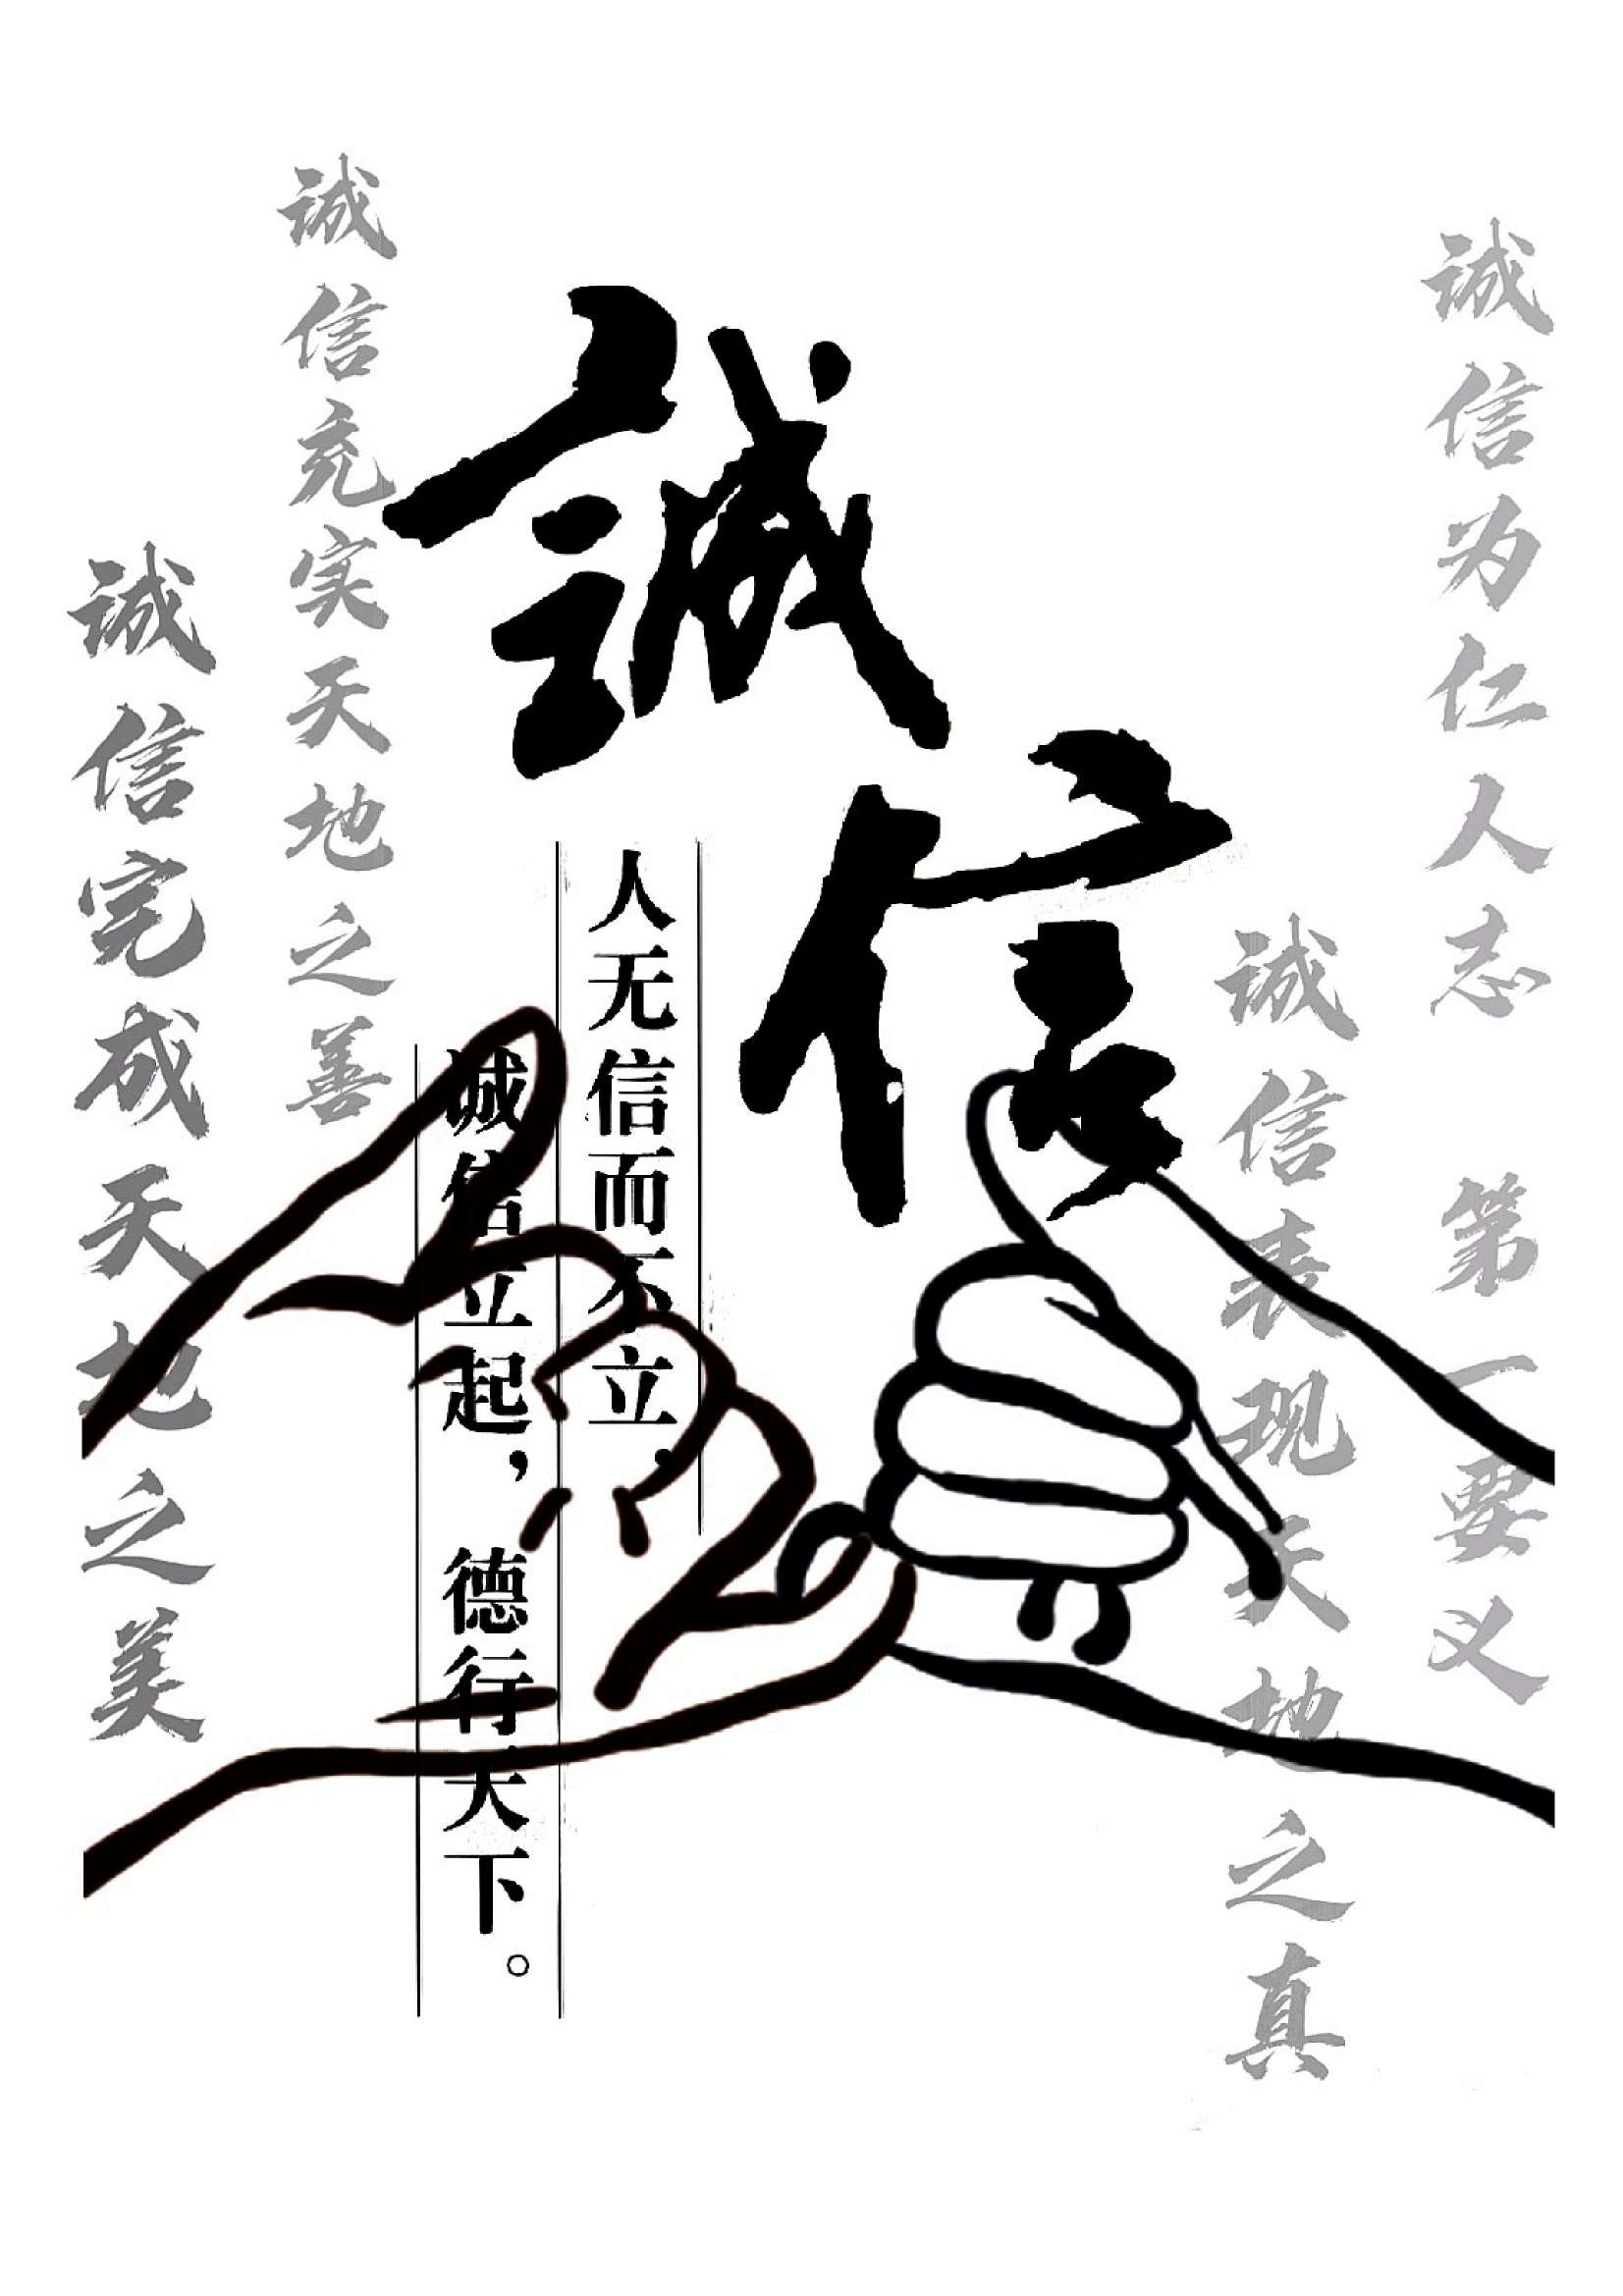 誠信
诚信为仁人志 第一要义
诚信表现天地之真
人无信而不立.
诚信立起，德行天下。
诚信充实天地之善
诚信完成天地之美